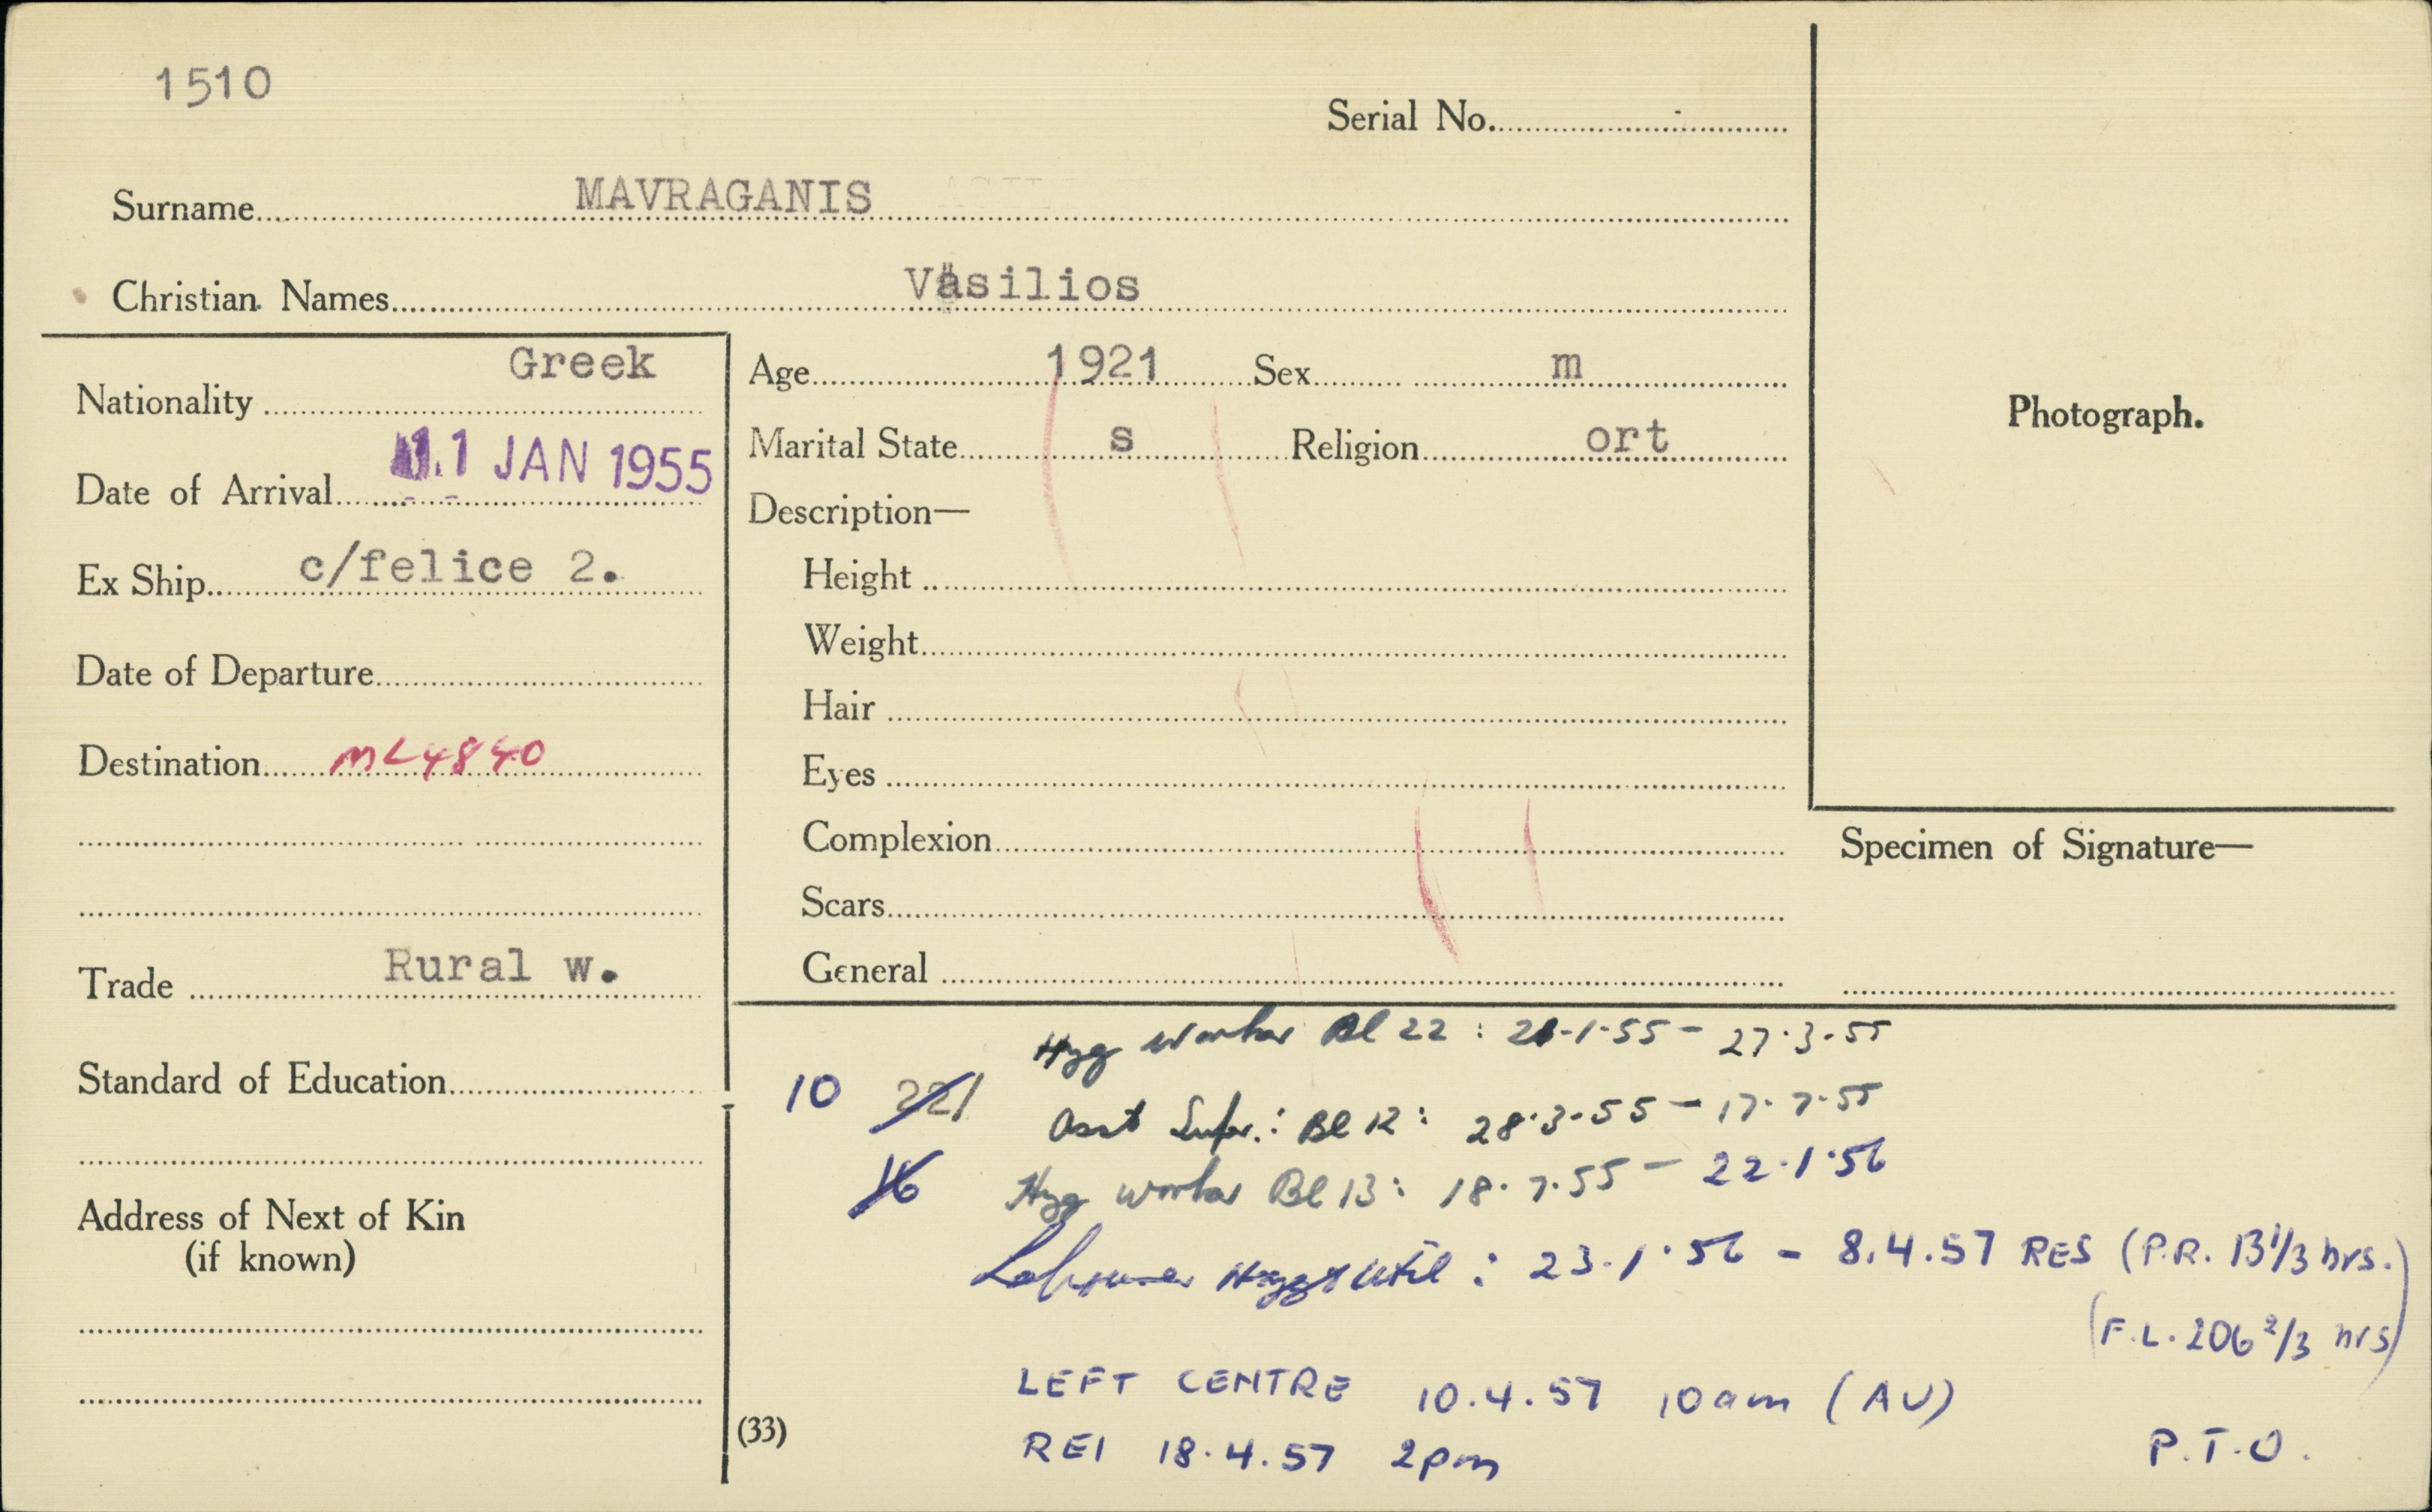 1510
Serial No.
Surname MAVRAGANIS
Christian Names Vasilios
Nationality Greek
Date of Arrival 11 JAN 1955
Ex Ship c/felice 2.
Date of Departure
Destination ML4840
Trade Rural w.
Standard of Education
Address of Next of Kin
(if known)
Age 1921 Sex m
Marital State s Religion ort
Description—
Height
Weight
Hair
Eyes
Complexion
Scars
General
Photograph.
Specimen of Signature—
Hyg Worker Bl 22 : 28-1-55 - 27.3.55
10 221
Asst Supr.: Bl 12: 28.3.55 - 17.7.55
16
Hyg worker Bl 13: 18.7.55 - 22.1.56
Labourer Hyg & Util : 23.1.56 - 8.4.57 RES (P.R. 13 1/3 hrs.)
(F.L. 206 2/3 hrs)
LEFT CENTRE 10.4.57 10am (AU)
REI 18.4.57 2pm
P.T.O.
(33)